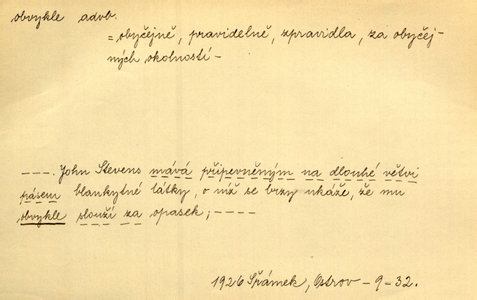 obvykle advb.
= obyčejně, pravidelně, zpravidla, za obyčej-
ných okolností –
– – – . John Stevens mává připevněným na dlouhé větvi
pásem blankytné látky, o níž se brzy ukáže, že mu
obvykle slouží za opasek; – – – –
1926 Šrámek, Ostrov – 9 – 32.